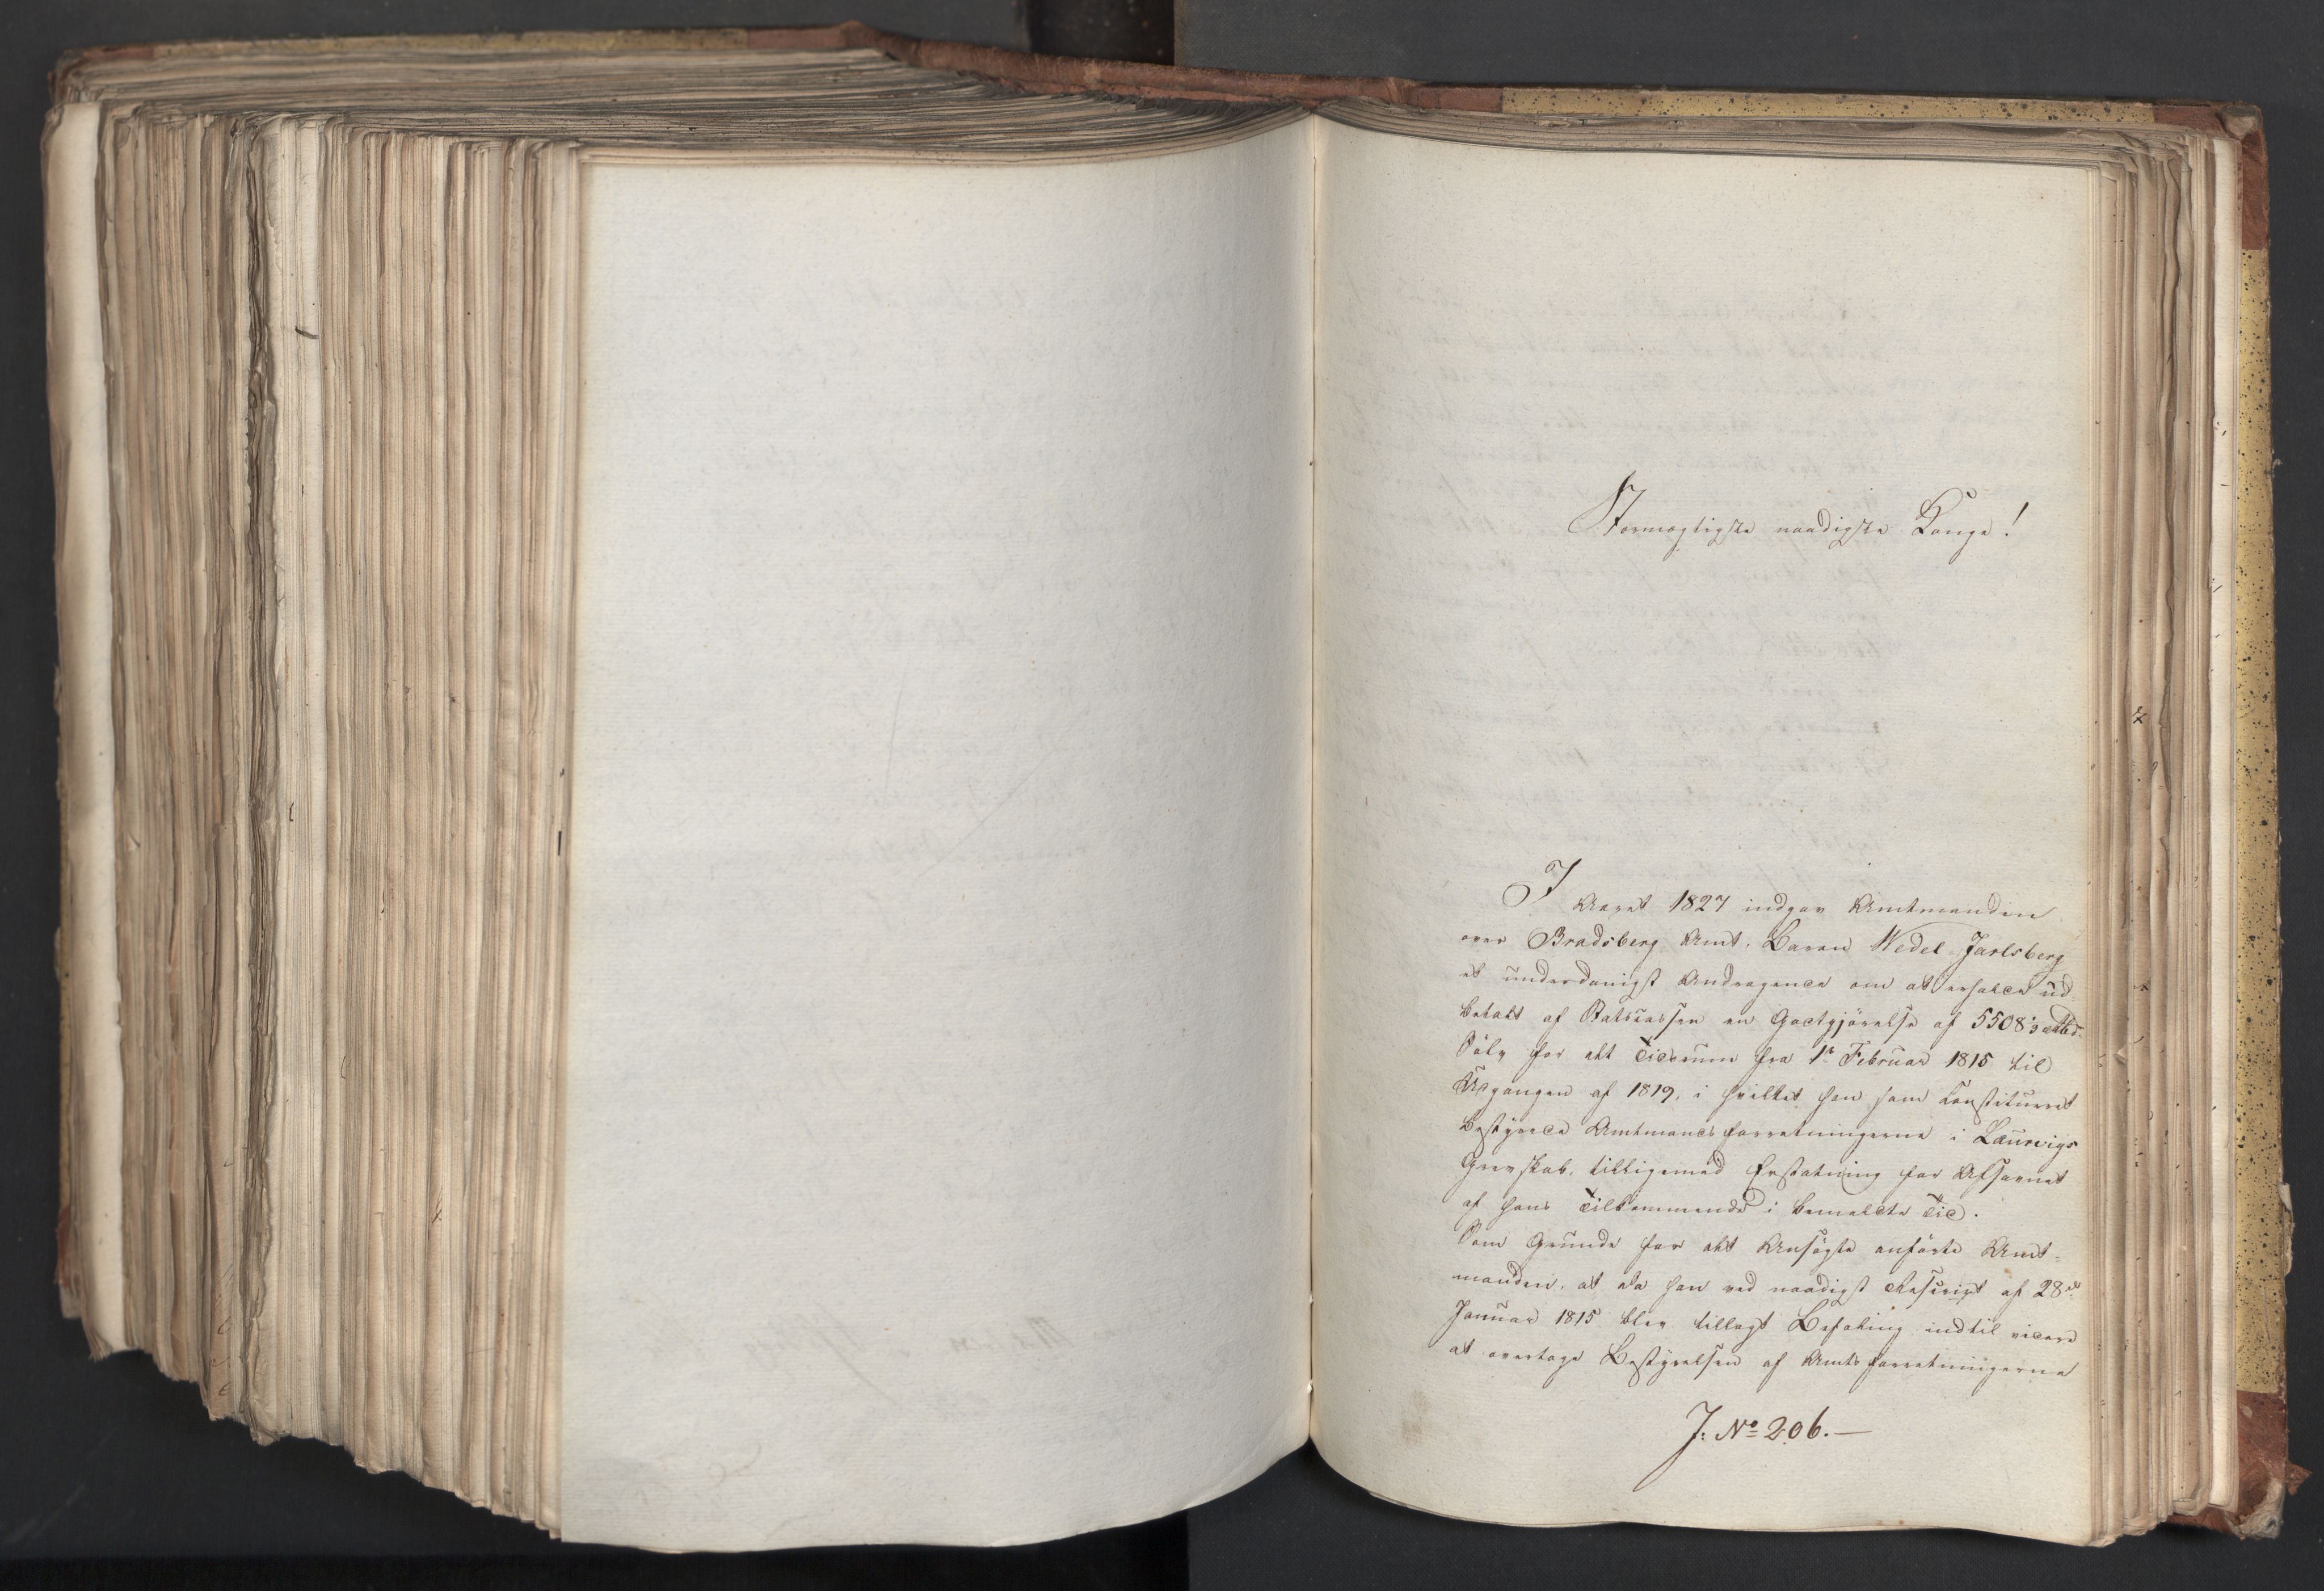 Stormægtigste naadigste Konge!
I Aaret 1827 indgav Amtmanden
over Bradsberg Amt, Baron Wedel-Jarlsberg
et underdanigst Andragende om at erholde ud-
betalt af Statskassen en Godtgjörelse af 5508
Sölv for det Tidsrum fra 1ste Februar 1815 til
Udgangen af 1819, i hvilket han som Constitueret
bestyrede Amtmandsforretningerne i Laurvigs
Grevskab, tilligemed Erstatning for Afsavnet
af hans Tilkommende i bemeldte Tid.
Som Grunde for det Ansögte anförte Amt-
manden, at da han ved naadigst Rescript af 28de
Januar 1815 blev tillagt Befaling indtil videre
at overtage Bestyrelsen af Amtsforretningerne
J. No 206.—